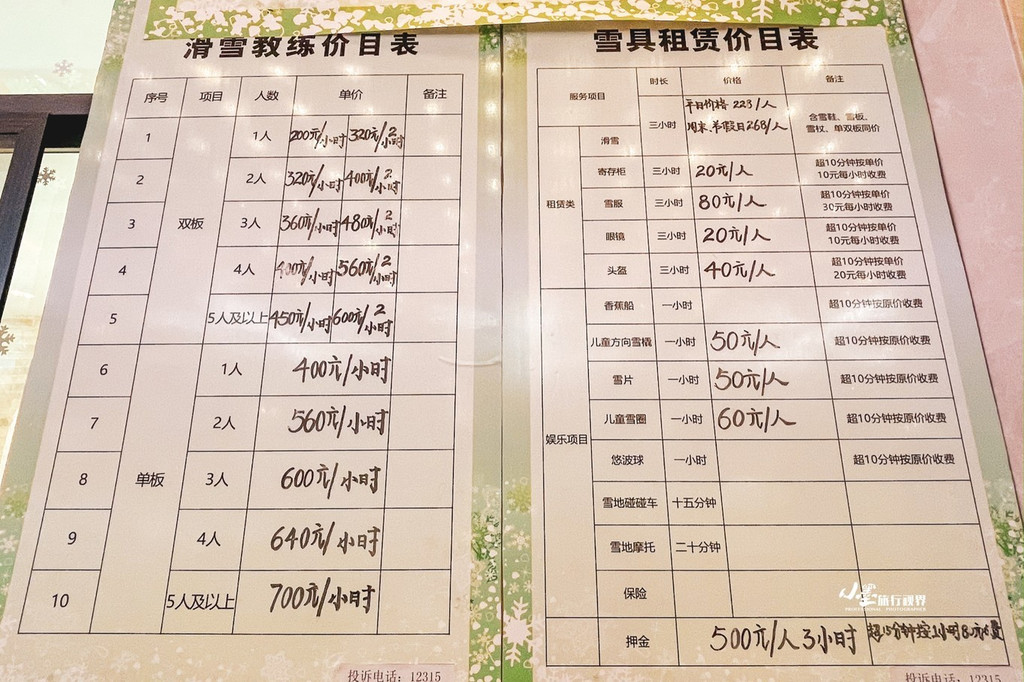 滑雪教练价目表
序号 项目 人数 单价 备注
1 1人 200元/小时 320元/2小时
2 2人 320元/小时 400元/2小时
3 双板 3人 360元/小时 480元/2小时
4 4人 400元/小时 560元/2小时
5 5人及以上 450元/小时 600元/2小时
6 1人 400元/小时
7 2人 560元/小时
8 单板 3人 600元/小时
9 4人 640元/小时
10 5人及以上 700元/小时
投诉电话：12315
雪具租赁价目表
服务项目 时长 价格 备注
租赁类
滑雪 三小时 平日价格 223/人 含雪鞋、雪板、
周末、节假日268/人 雪杖、单双板同价
寄存柜 三小时 20元/人 超10分钟按单价
10元每小时收费
雪服 三小时 80元/人 超10分钟按单价
30元每小时收费
眼镜 三小时 20元/人 超10分钟按单价
10元每小时收费
头盔 三小时 40元/人 超10分钟按单价
20元每小时收费
娱乐项目
香蕉船 一小时 超10分钟按原价收费
儿童方向雪橇 一小时 50元/人 超10分钟按原价收费
雪片 一小时 50元/人 超10分钟按原价收费
儿童雪圈 一小时 60元/人 超10分钟按原价收费
悠波球 一小时 超10分钟按原价收费
雪地碰碰车 十五分钟
雪地摩托 二十分钟
保险
押金 500元/人 3小时 超15分钟按1小时80元收费
投诉电话：12315
小墨旅行视界
PROFESSIONAL PHOTOGRAPHER